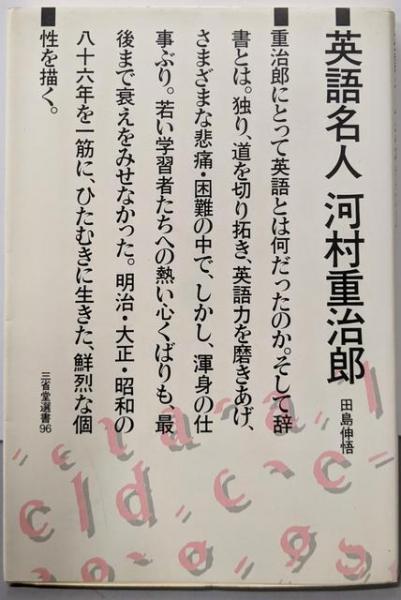 英語名人 河村重治郎
田島伸悟
重治郎にとって英語とは何だったのか。そして辞
書とは。独り、道を切り拓き、英語力を磨きあげ、
さまざまな悲痛・困難の中で、しかし、渾身の仕
事ぶり。若い学習者たちへの熱い心くばりも、最
後まで衰えをみせなかった。明治・大正・昭和の
八十六年を一筋に、ひたむきに生きた、鮮烈な個
性を描く。
三省堂選書96